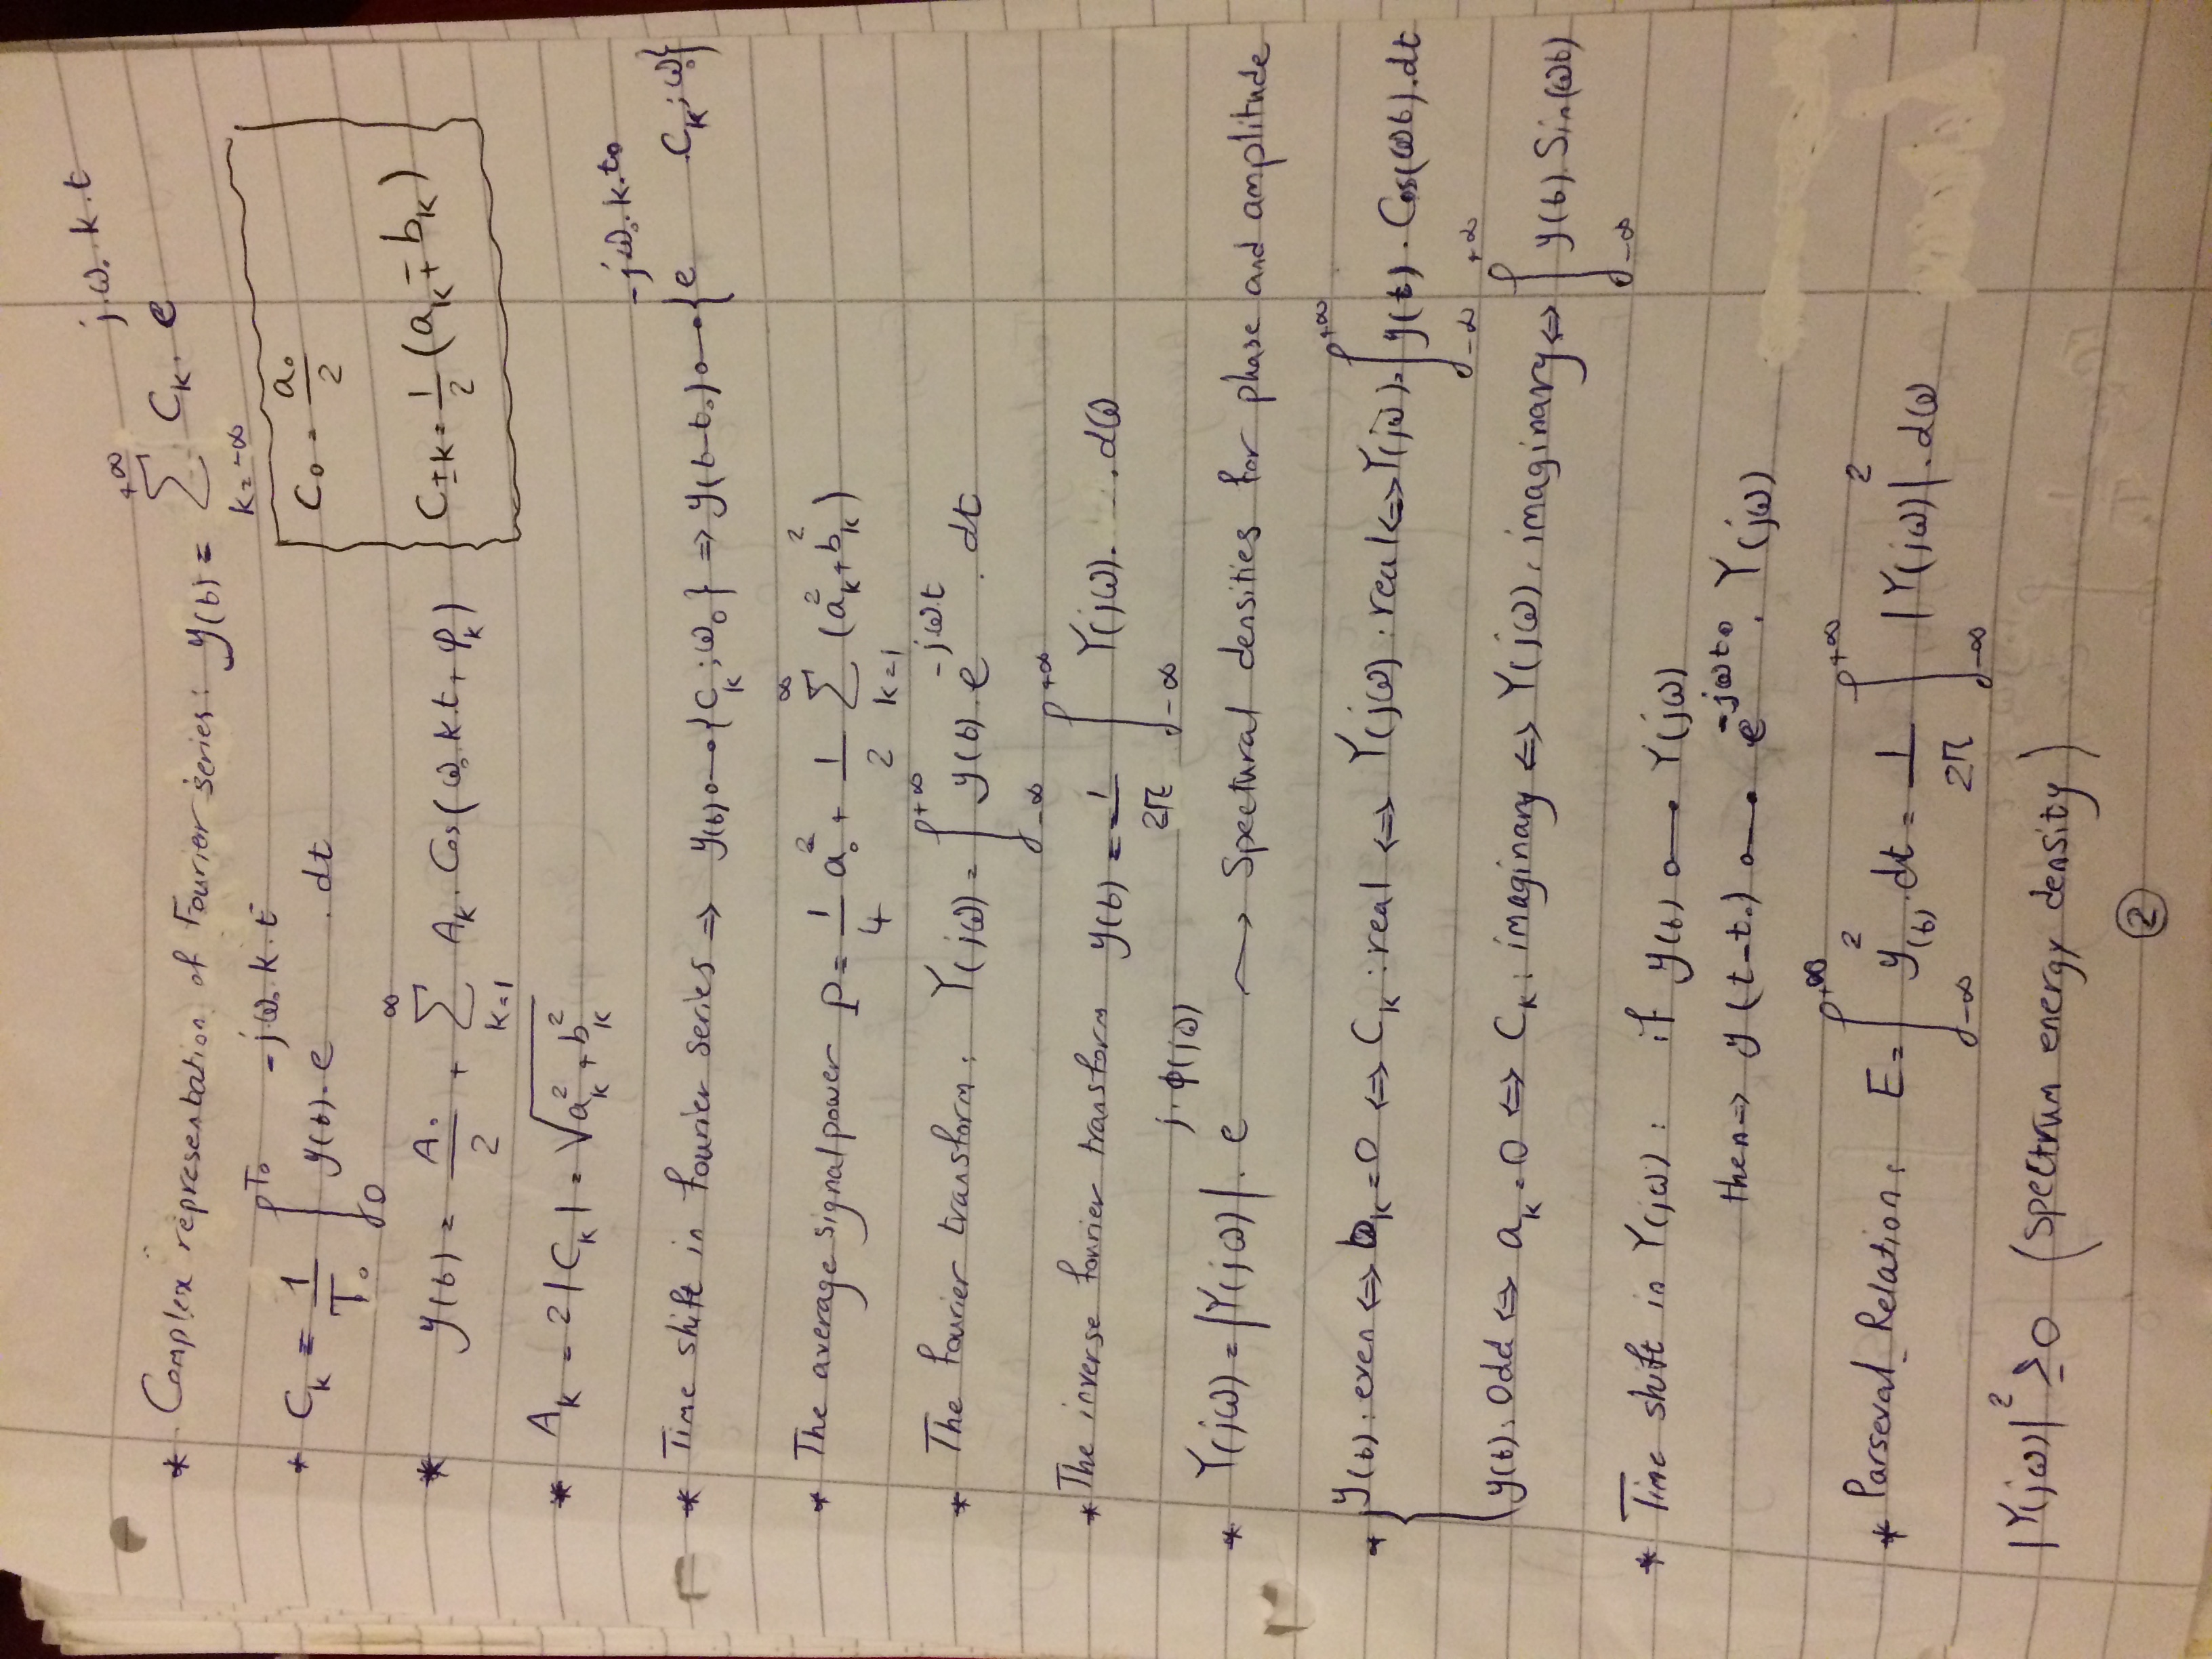 * Complex representation of Fourier series: y(t) = Σ_{k=-∞}^{+∞} C_k . e^{j.ω₀.k.t}
* C_k = 1/T₀ ∫_0^{T₀} y(t) . e^{-j.ω₀.k.t} . dt
C₀ = a₀/2
* y(t) = A₀/2 + Σ_{k=1}^{∞} A_k . Cos(ω₀.k.t + φ_k)
C_{±k} = 1/2 (a_k ∓ b_k)
* A_k = 2|C_k| = √(a_k² + b_k²)
* Time shift in fourier series ⇒ y(t) o—• {C_k ; ω₀} ⇒ y(t-t₀) o—• {e^{-j.ω₀.k.t₀} . C_k ; ω₀}
* The average signal power P = 1/4 a₀² + 1/2 Σ_{k=1}^{∞} (a_k² + b_k²)
* The fourier transform: Y(jω) = ∫_{-∞}^{+∞} y(t) . e^{-j.ω.t} . dt
* The inverse fourier transform y(t) = 1/2π ∫_{-∞}^{+∞} Y(jω). . dω
* Y(jω) = |Y(jω)| . e^{j.ϕ(jω)} ⤳ Spectural densities for phase and amplitude
* { y(t) : even ⇔ b_k = 0 ⇔ C_k : real ⇔ Y(jω) : real ⇔ Y(jω) = ∫_{-∞}^{+∞} y(t) . Cos(ωt) . dt
y(t) : Odd ⇔ a_k = 0 ⇔ C_k : imaginary ⇔ Y(jω) : imaginary ⇔ ∫_{-∞}^{+∞} y(t) . Sin(ωt)
* Time shift in Y(jω) : if y(t) o—• Y(jω)
then ⇒ y(t-t₀) o—• e^{-jωt₀} . Y(jω)
* Parseval Relation: E = ∫_{-∞}^{+∞} y²(t) . dt = 1/2π ∫_{-∞}^{+∞} |Y(jω)|² . dω
|Y(jω)|² ≥ 0 (spectrum energy density)
2